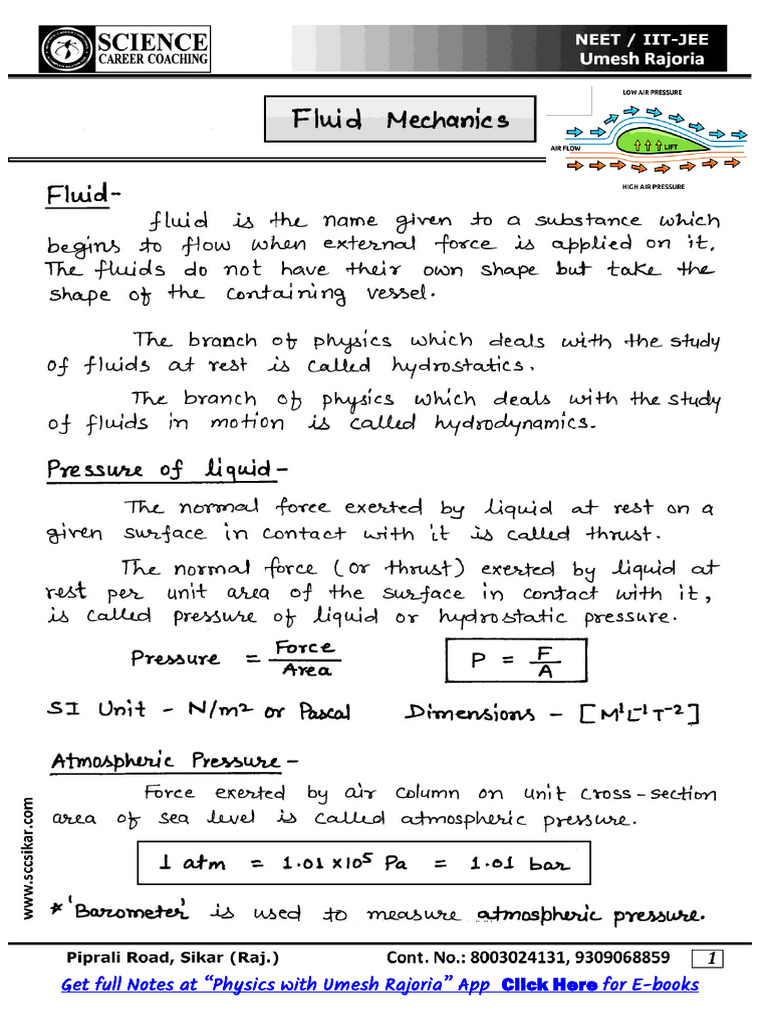 SCIENCE
CAREER COACHING
NEET / IIT-JEE
Umesh Rajoria
Fluid Mechanics
LOW AIR PRESSURE
AIR FLOW
LIFT
HIGH AIR PRESSURE
Fluid-
fluid is the name given to a substance which
begins to flow when external force is applied on it.
The fluids do not have their own shape but take the
shape of the containing vessel.
The branch of physics which deals with the study
of fluids at rest is called hydrostatics.
The branch of physics which deals with the study
of fluids in motion is called hydrodynamics.
Pressure of liquid-
The normal force exerted by liquid at rest on a
given surface in contact with it is called thrust.
The normal force (or thrust) exerted by liquid at
rest per unit area of the surface in contact with it,
is called pressure of liquid or hydrostatic pressure.
Pressure = Force / Area P = F / A
SI Unit - N/m² or Pascal Dimensions - [M¹L⁻¹T⁻²]
Atmospheric Pressure-
Force exerted by air column on unit cross-section
area of sea level is called atmospheric pressure.
1 atm = 1.01 × 10⁵ Pa = 1.01 bar
* 'Barometer' is used to measure atmospheric pressure.
www.sccsikar.com
Piprali Road, Sikar (Raj.) Cont. No.: 8003024131, 9309068859 1
Get full Notes at “Physics with Umesh Rajoria” App Click Here for E-books